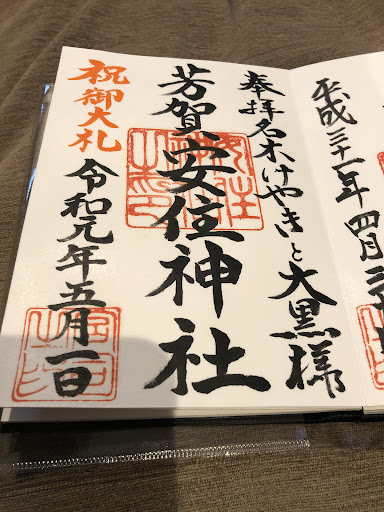 平成三十一年四月三
奉拝名木けやきと大黒様
芳賀安住神社
祝御大礼
令和元年五月一日